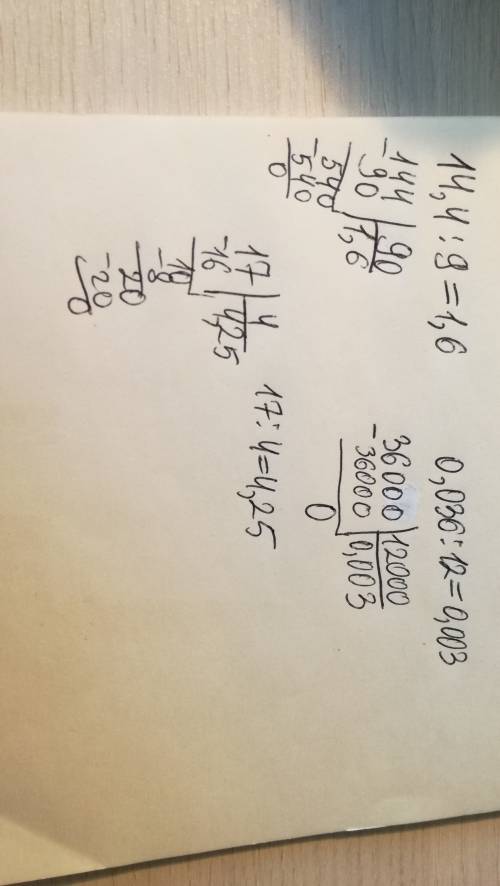 14,4 : 9 = 1,6
144 | 90
-90 | 1,6
540
-540
0
0,036 : 12 = 0,003
36000 | 12000
-36000 | 0,003
0
17 : 4 = 4,25
17 | 4
-16 | 4,25
10
-8
20
-20
0